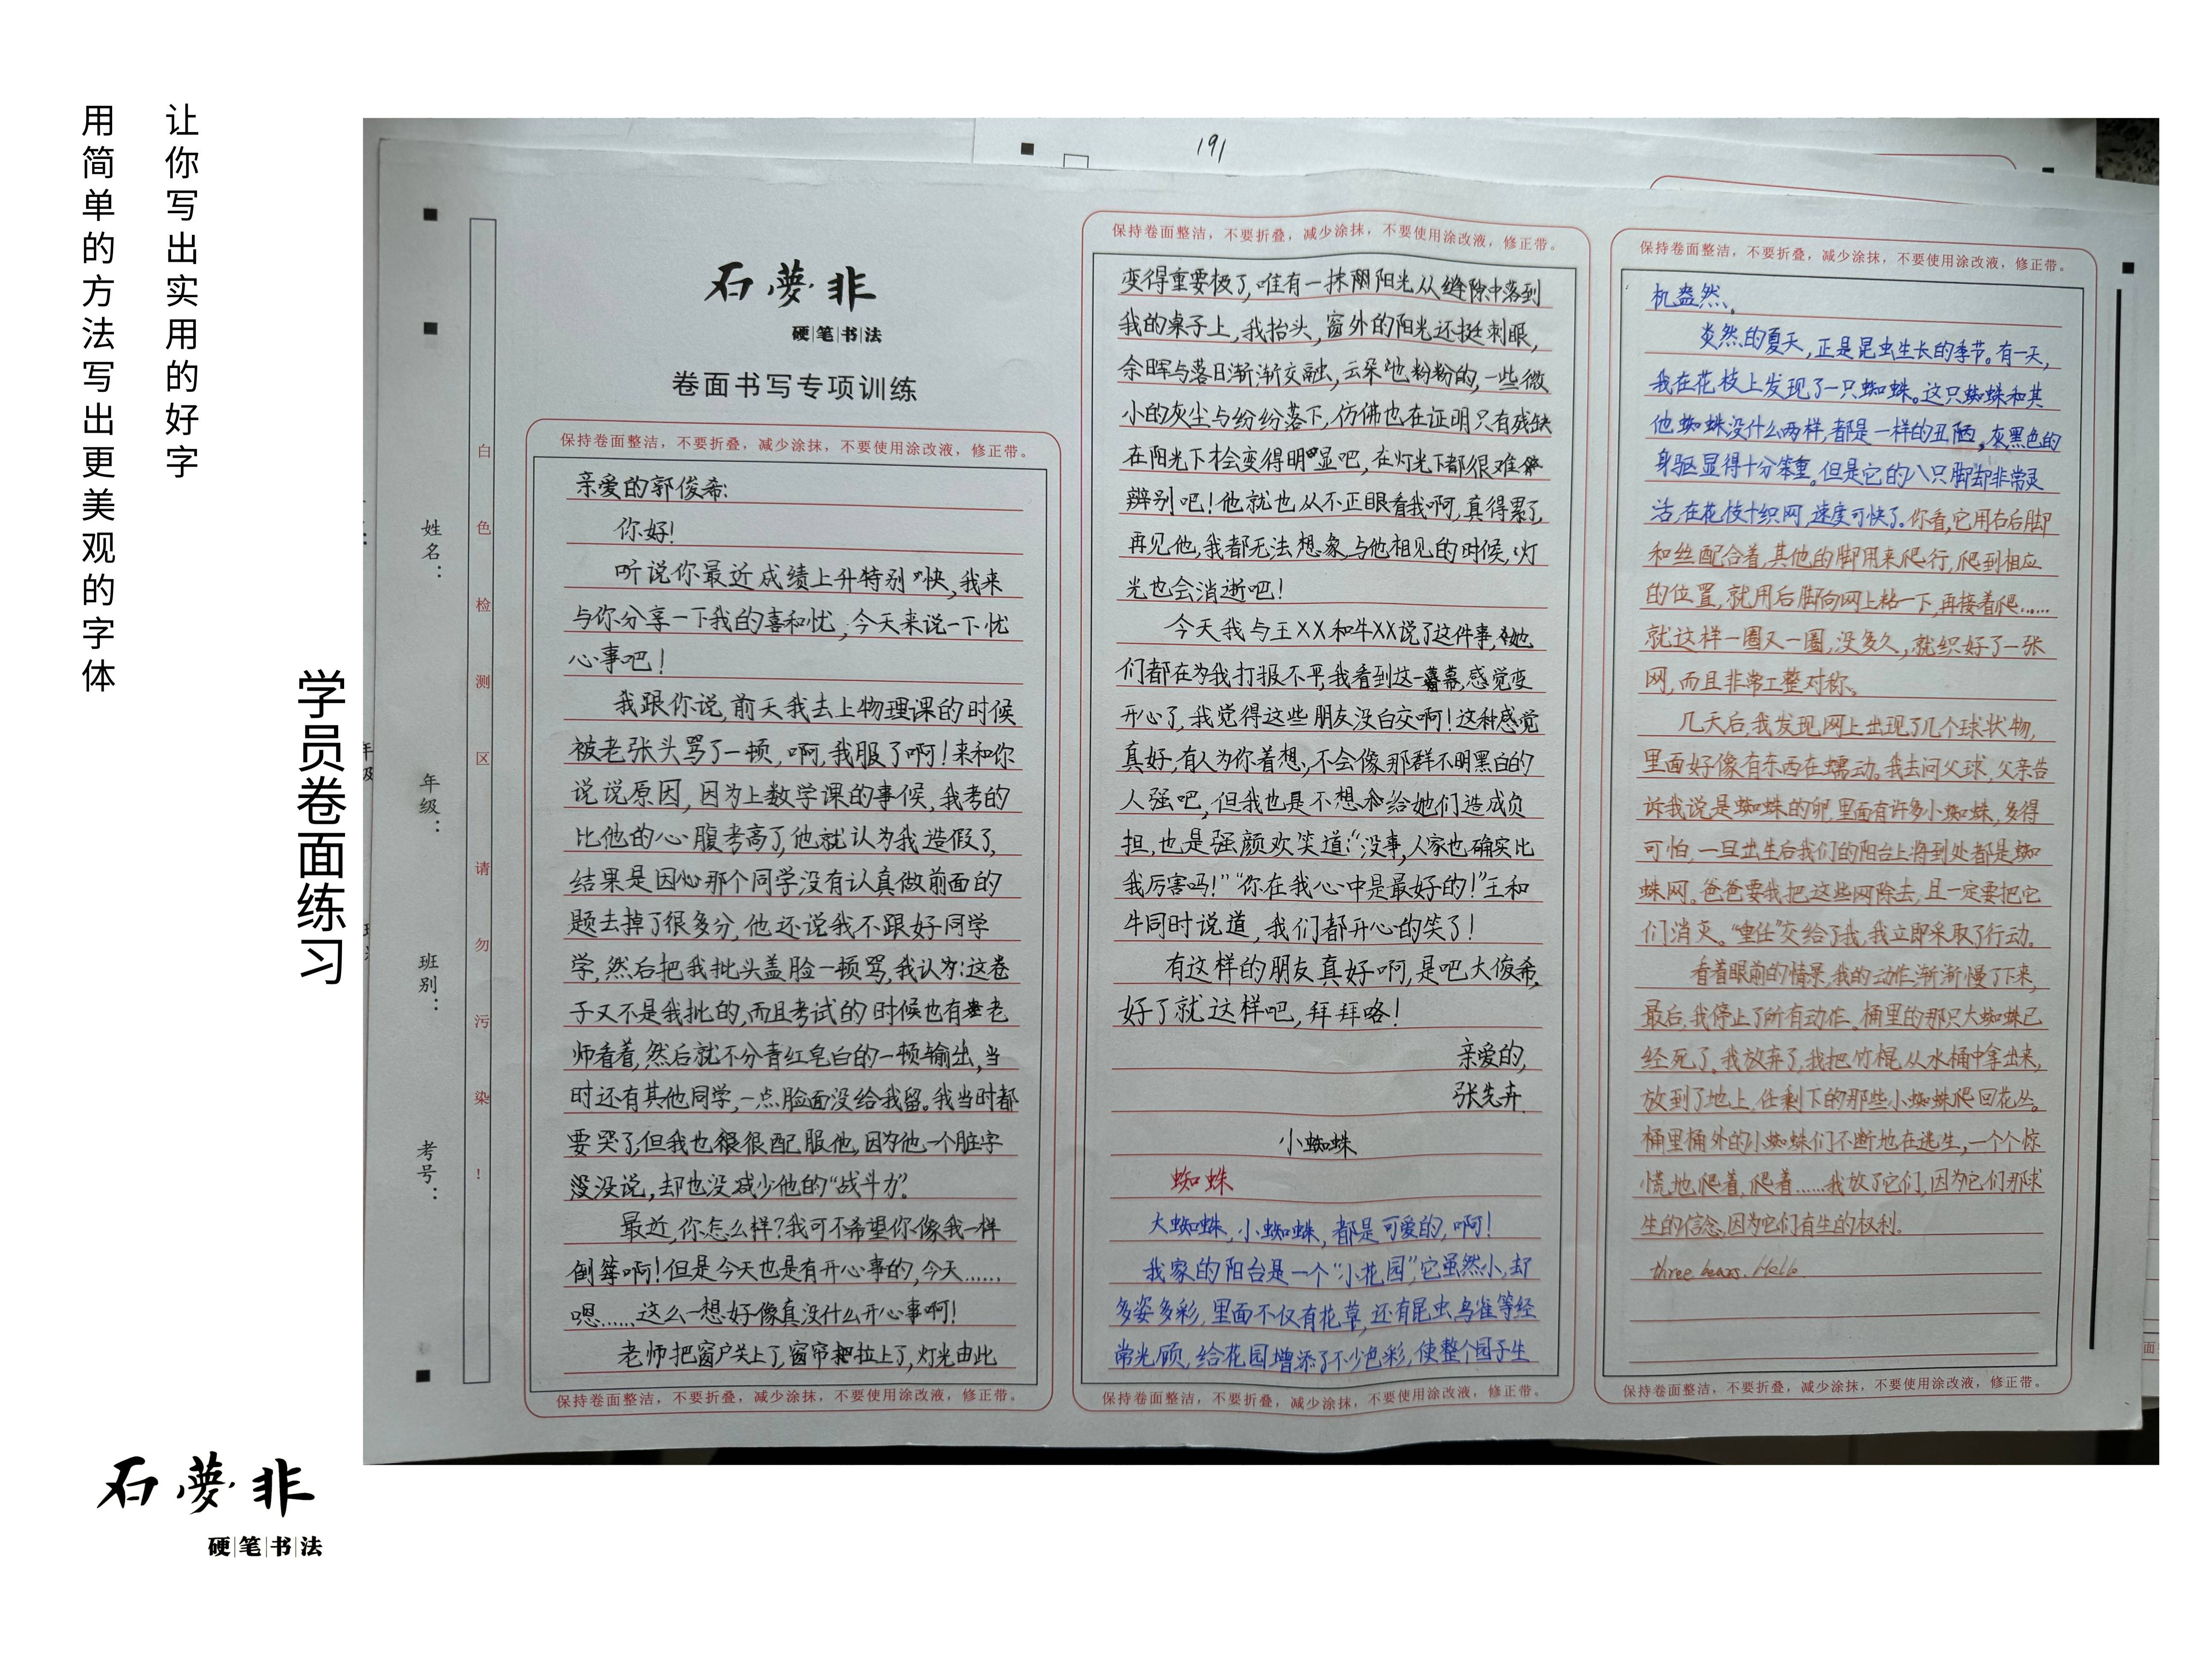 让你写出实用的好字
用简单的方法写出更美观的字体
学员卷面练习
石夢非
硬|笔|书|法
191
石夢非
硬|笔|书|法
卷面书写专项训练
白色检测区 请勿污染！
姓名：
年级：
班别：
考号：
保持卷面整洁，不要折叠，减少涂抹，不要使用涂改液，修正带。
亲爱的郭俊希:
你好!
听说你最近成绩上升特别快,我来
与你分享一下我的喜和忧,今天来说一下忧
心事吧!
我跟你说,前天我去上物理课的时候
被老张头骂了一顿,啊,我服了啊!来和你
说说原因,因为上数学课的事候,我考的
比他的心腹考高了,他就认为我造假了,
结果是因心那个同学没有认真做前面的
题去掉了很多分,他还说我不跟好同学
学,然后把我批头盖脸一顿骂,我认为:这卷
子又不是我批的,而且考试的时候也有老
师看着,然后就不分青红皂白的一顿输出,当
时还有其他同学,一点脸面没给我留。我当时都
要哭了,但我也很很配服他,因为他一个脏字
没没说,却也没减少他的“战斗力”。
最近,你怎么样?我可不希望你像我一样
倒筆啊!但是今天也是有开心事的,今天……
嗯……这么一想好像真没什么开心事啊!
老师把窗户关上了,窗帘拉上了,灯光由此
保持卷面整洁，不要折叠，减少涂抹，不要使用涂改液，修正带。
保持卷面整洁，不要折叠，减少涂抹，不要使用涂改液，修正带。
变得重要极了,唯有一抹阳光从缝隙中落到
我的桌子上,我抬头,窗外的阳光还挺刺眼,
余晖与落日渐渐交融,云朵也粉粉的,一些微
小的灰尘与纷纷落下,仿佛也在证明只有残缺
在阳光下才会变得明显吧,在灯光下都很难
辨别吧!他就也从不正眼看我啊,真得累了,
再见他,我都无法想象,与他相见的时候,灯
光也会消逝吧!
今天我与王XX和牛XX说了这件事,她
们都在为我打报不平,我看到这一幕,感觉变
开心了,我觉得这些朋友没白交啊!这种感觉
真好,有人为你着想,不会像那群不明黑白的
人强吧,但我也是不想给她们造成负
担,也是强颜欢笑道:“没事,人家也确实比
我厉害吗!”“你在我心中是最好的!”王和
牛同时说道,我们都开心的笑了!
有这样的朋友真好啊,是吧大俊希,
好了就这样吧,拜拜咯!
亲爱的,
张先卉.
小蜘蛛
蜘蛛
大蜘蛛,小蜘蛛,都是可爱的,啊!
我家的阳台是一个“小花园”,它虽然小,却
多姿多彩,里面不仅有花草,还有昆虫鸟雀等经
常光顾,给花园增添了不少色彩,使整个园子生
保持卷面整洁，不要折叠，减少涂抹，不要使用涂改液，修正带。
保持卷面整洁，不要折叠，减少涂抹，不要使用涂改液，修正带。
机盎然。
炎然的夏天,正是昆虫生长的季节。有一天,
我在花枝上发现了一只蜘蛛。这只蜘蛛和其
他蜘蛛没什么两样,都是一样的丑陋。灰黑色的
身驱显得十分笨重。但是它的八只脚却非常灵
活,在花枝十织网,速度可快了。你看,它用右后脚
和丝配合着,其他的脚用来爬行,爬到相应
的位置,就用后脚向网上粘一下,再接着爬……
就这样一圈又一圈,没多久,就织好了一张
网,而且非常工整对称。
几天后,我发现网上出现了几个球状物,
里面好像有东西在蠕动。我去问父球,父亲告
诉我说是蜘蛛的卵,里面有许多小蜘蛛,多得
可怕,一旦出生后我们的阳台上将到处都是蜘
蛛网。爸爸要我把这些网除去,且一定要把它
们消灭。“重任”交给了我,我立即采取了行动。
看着眼前的情景,我的动作渐渐慢了下来,
最后,我停止了所有动作。桶里的那只大蜘蛛已
经死了,我放弃了,我把竹棍从水桶中拿出来,
放到了地上,任剩下的那些小蜘蛛爬回花丛。
桶里桶外的小蜘蛛们不断地在逃生,一个个惊
慌地爬着,爬着……我放了它们,因为它们那球
生的信念,因为它们有生的权利。
three bears. Hello.
保持卷面整洁，不要折叠，减少涂抹，不要使用涂改液，修正带。